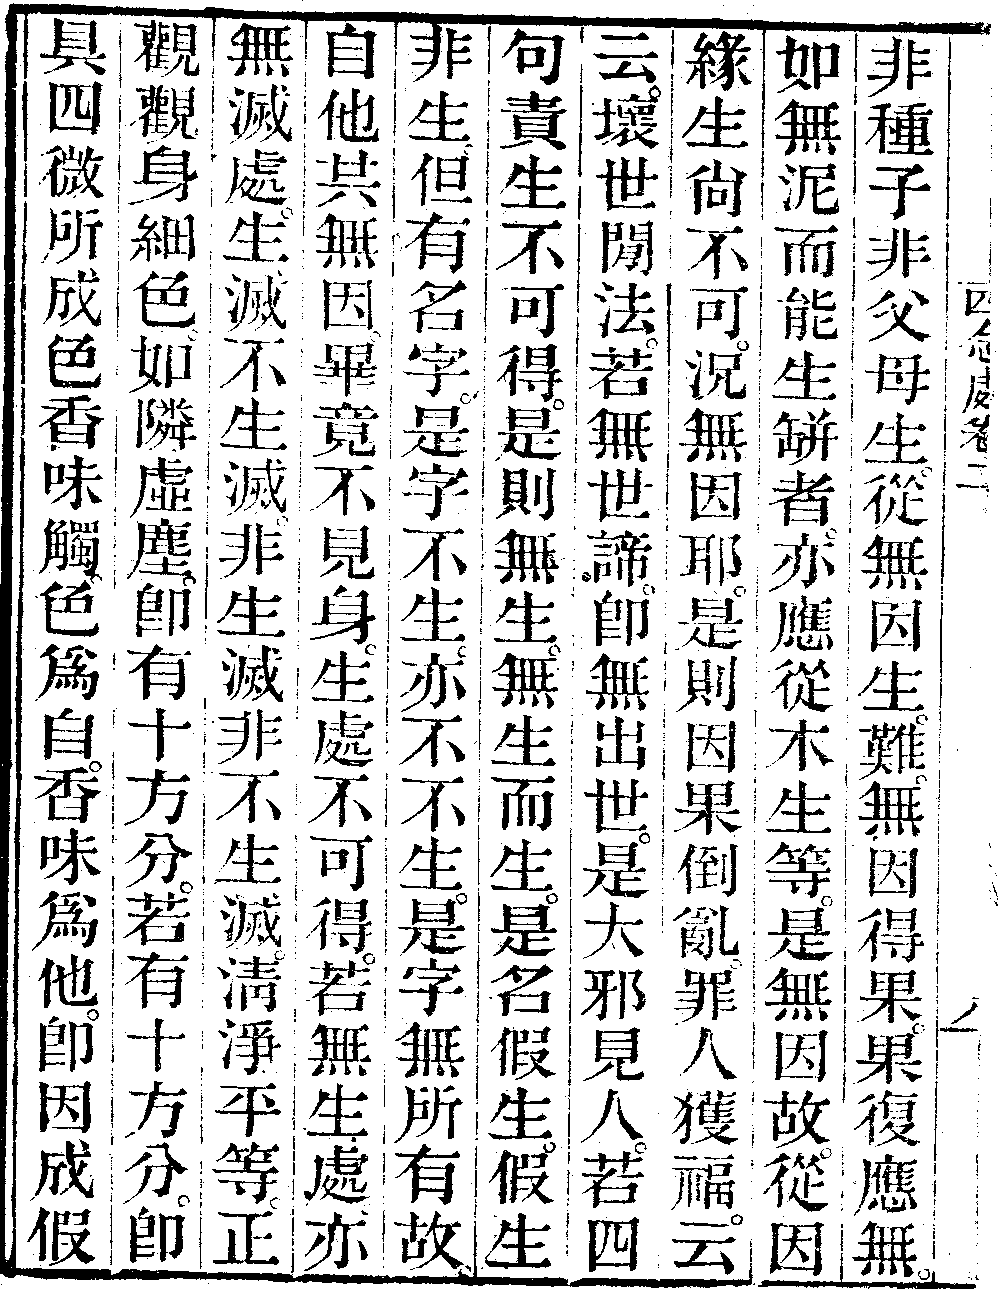 四念處卷二
非種子非父母生。從無因生。難。無因得果。果復應無。
如無泥而能生缾者。亦應從木生等。是無因故。從因
緣生尙不可。況無因耶。是則因果倒亂。罪人獲福。云
云。壞世間法。若無世諦。卽無出世。是大邪見人。若四
句責生不可得。是則無生。無生而生。是名假生。假生
非生。但有名字。是字不生。亦不不生。是字無所有故。
自他共無因。畢竟不見身。生處不可得。若無生處亦
無滅處。生滅不生滅。非生滅非不生滅。淸淨平等。正
觀觀身細色。如隣虛塵。卽有十方分。若有十方分。卽
具四微所成色香味觸。色爲自。香味爲他。卽因成假